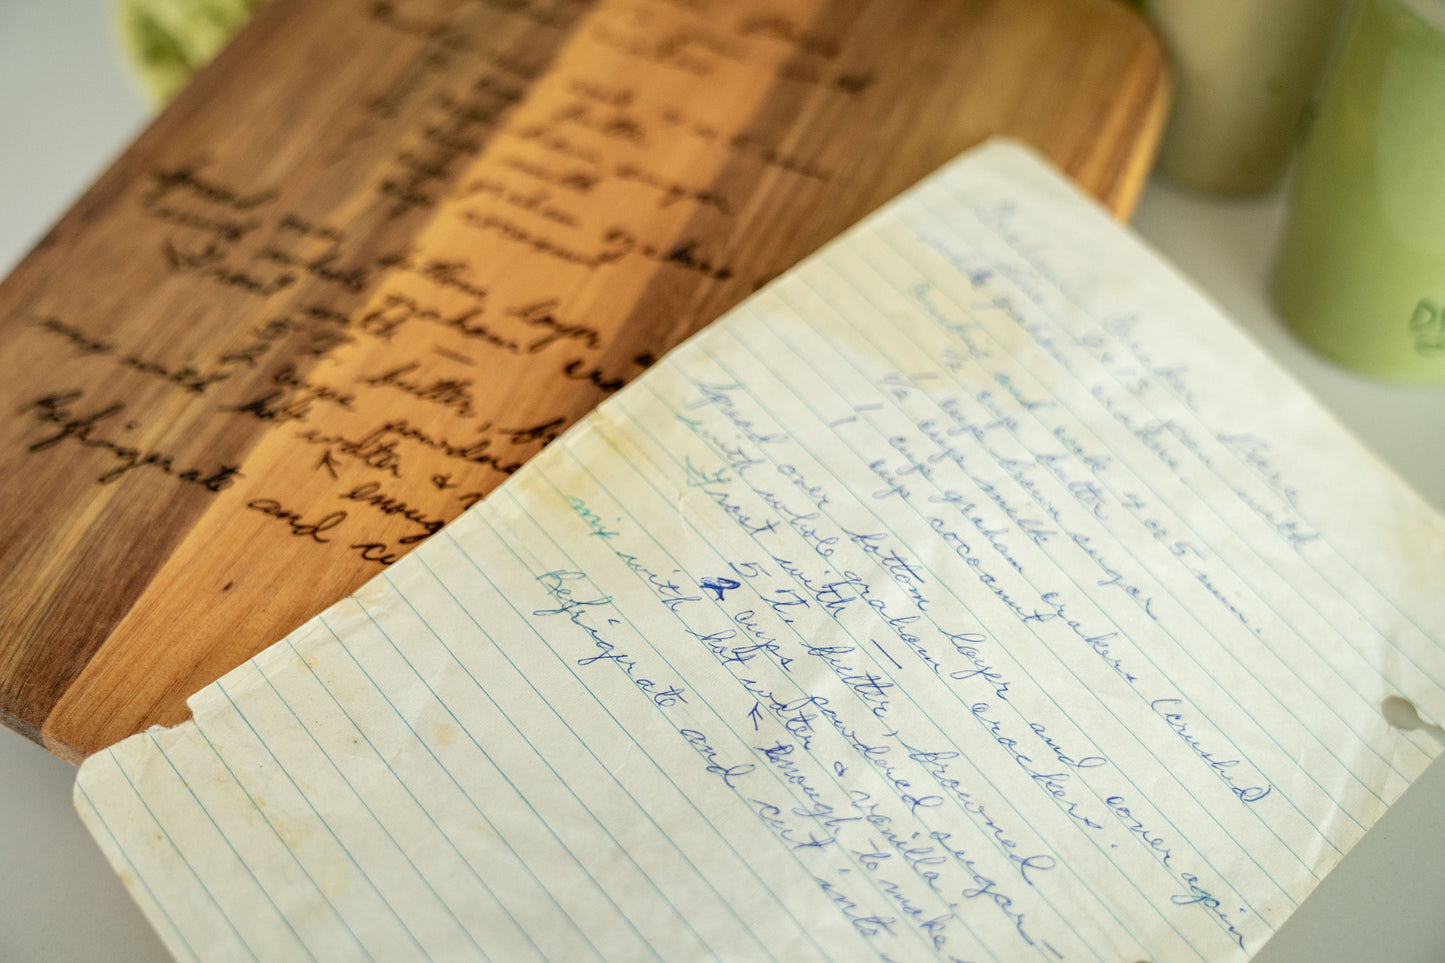 Graham Cracker Bars
Line 9x13 pan with
graham crackers
Combine and cook 4 or 5 min.
1/2 cup butter
1 cup brown sugar
1/2 cup milk
1 cup graham crackers (crushed)
1 cup cocoanut
Spread over bottom layer and cover again
with whole graham crackers.
Frost with —
5 T. butter, browned
2 cups powdered sugar —
mix with hot water & vanilla
↖ Enough to make
Refrigerate and cut into
Spread over
with whole
Frost
bottom layer
graham cra
butter, br
cups powdere
mix with hot water & v
↖ enoug
Refrigerate and cu
butter
brown sugar
milk
graham crackers
cocoanut